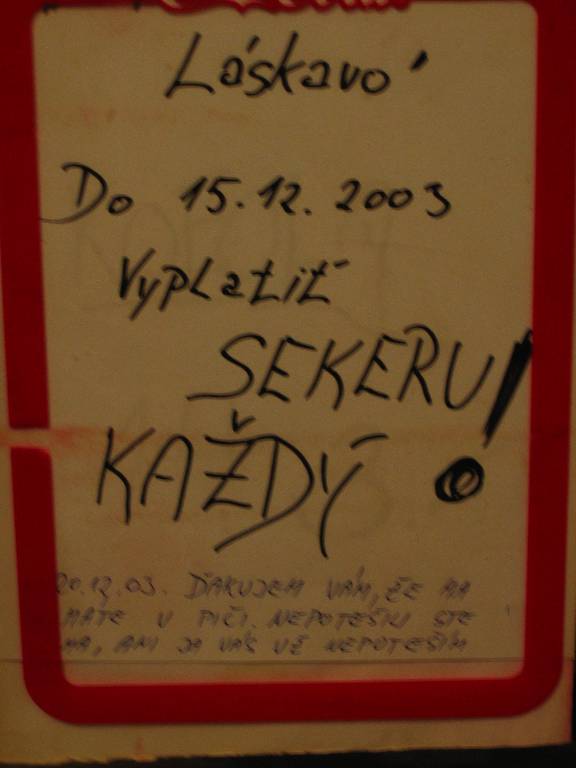 Láskavo
Do 15.12.2003
Vyplatiť
SEKERU!
KAŽDÝ
20.12.03. ĎAKUJEM VÁM, ŽE MA
MÁTE V PIČI. NEPOTEŠILI STE
MA, ANI JA VÁS UŽ NEPOTEŠÍM